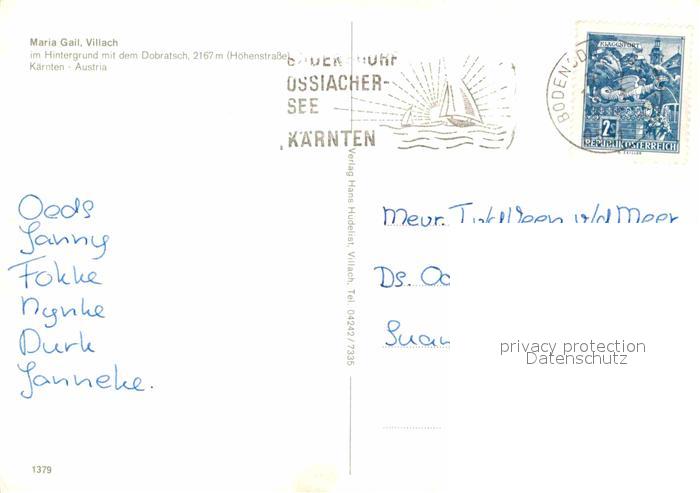 Maria Gail, Villach
im Hintergrund mit dem Dobratsch, 2167 m (Höhenstraße)
Kärnten - Austria
OSSIACHER-
SEE
KÄRNTEN
BODENSD
KLAGENFURT
2S
REPUBLIK ÖSTERREICH
Oeds
Janny
Fokke
Nynke
Durk
Janneke.
Verlag Hans Hudelist, Villach, Tel. 04242/7335
Mevr. v/d Meer
Ds.
privacy protection
Datenschutz
1379